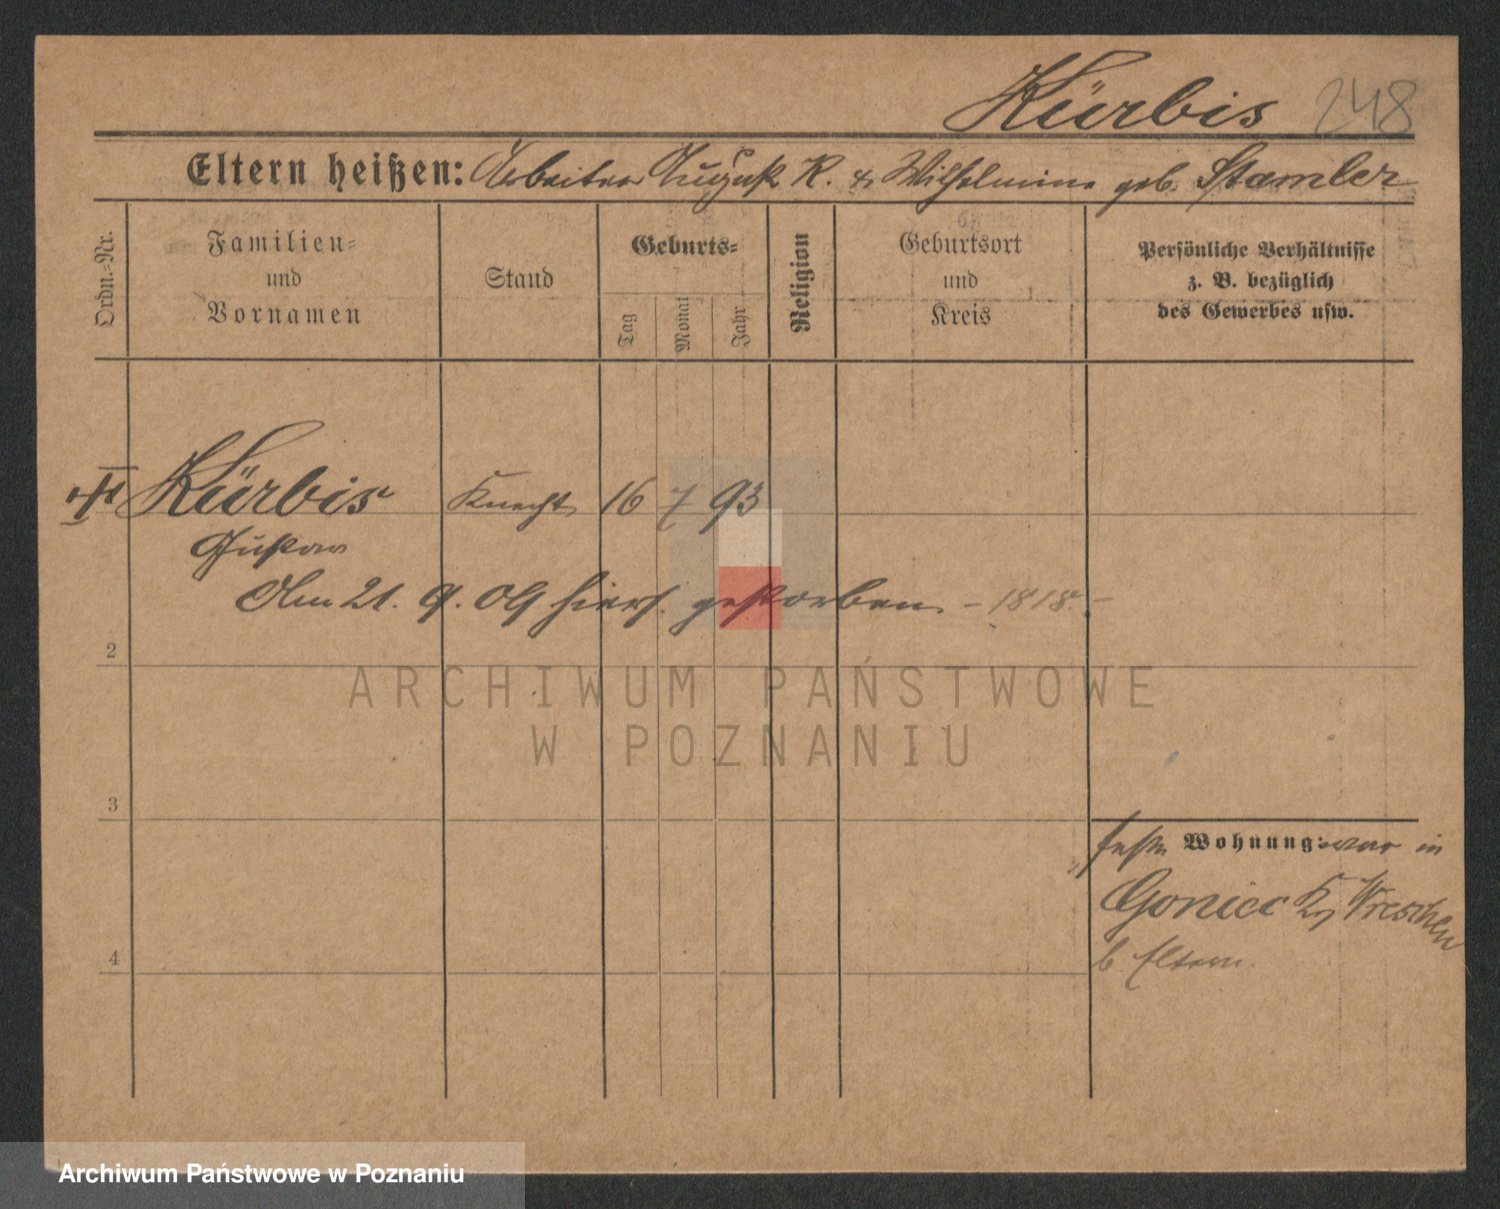 Kürbis 248
Eltern heißen: Arbeiter August K. & Wilhelmine geb. Stamler
Ordn.=Nr.
Familien=
und
Vornamen
Stand
Geburts=
Tag
Monat
Jahr
Religion
Geburtsort
und
Kreis
Persönliche Verhältnisse
z. B. bezüglich
des Gewerbes usw.
Kürbis Knecht 16 7 93
Gustav
Am 21. 9. 09 hiers. gestorben. - 1818. -
2
ARCHIWUM PAŃSTWOWE
W POZNANIU
3
Wohnung: war in
Goniec Kr. Wreschen
b Eltern.
4
Archiwum Państwowe w Poznaniu